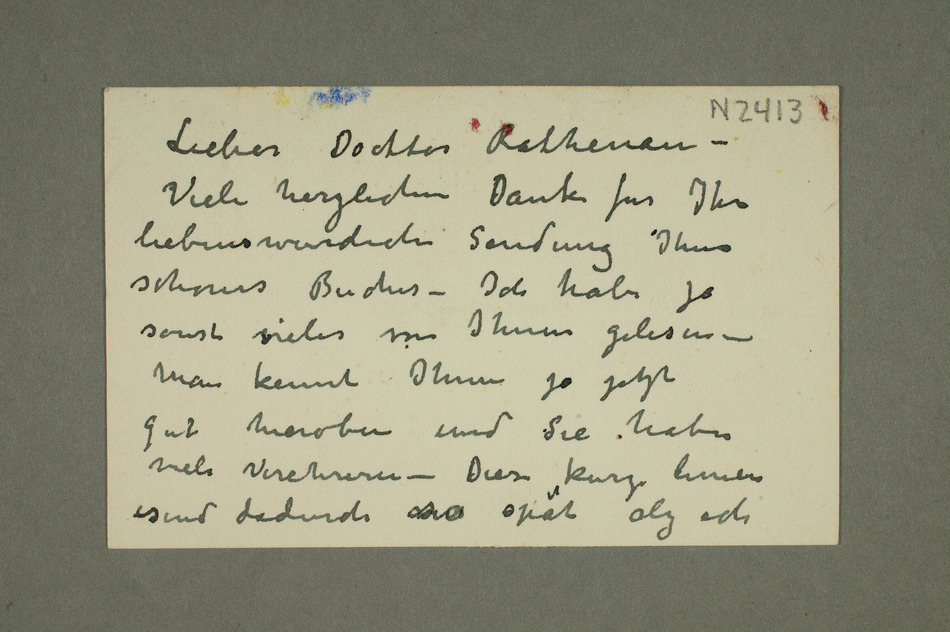 N2413
Lieber Docktor Rathenau –
Viele herzlichen Dank fur Ihre
liebenswurdiche Sendung Ihres
schones Buches – Ich habe ja
sonst vieles von Ihnen gelesen –
man kennt Ihnen ja jetzt
gut hieroben und Sie haben
viele Verehrern – Diese kurze linien
sind dadurch so spät als ich